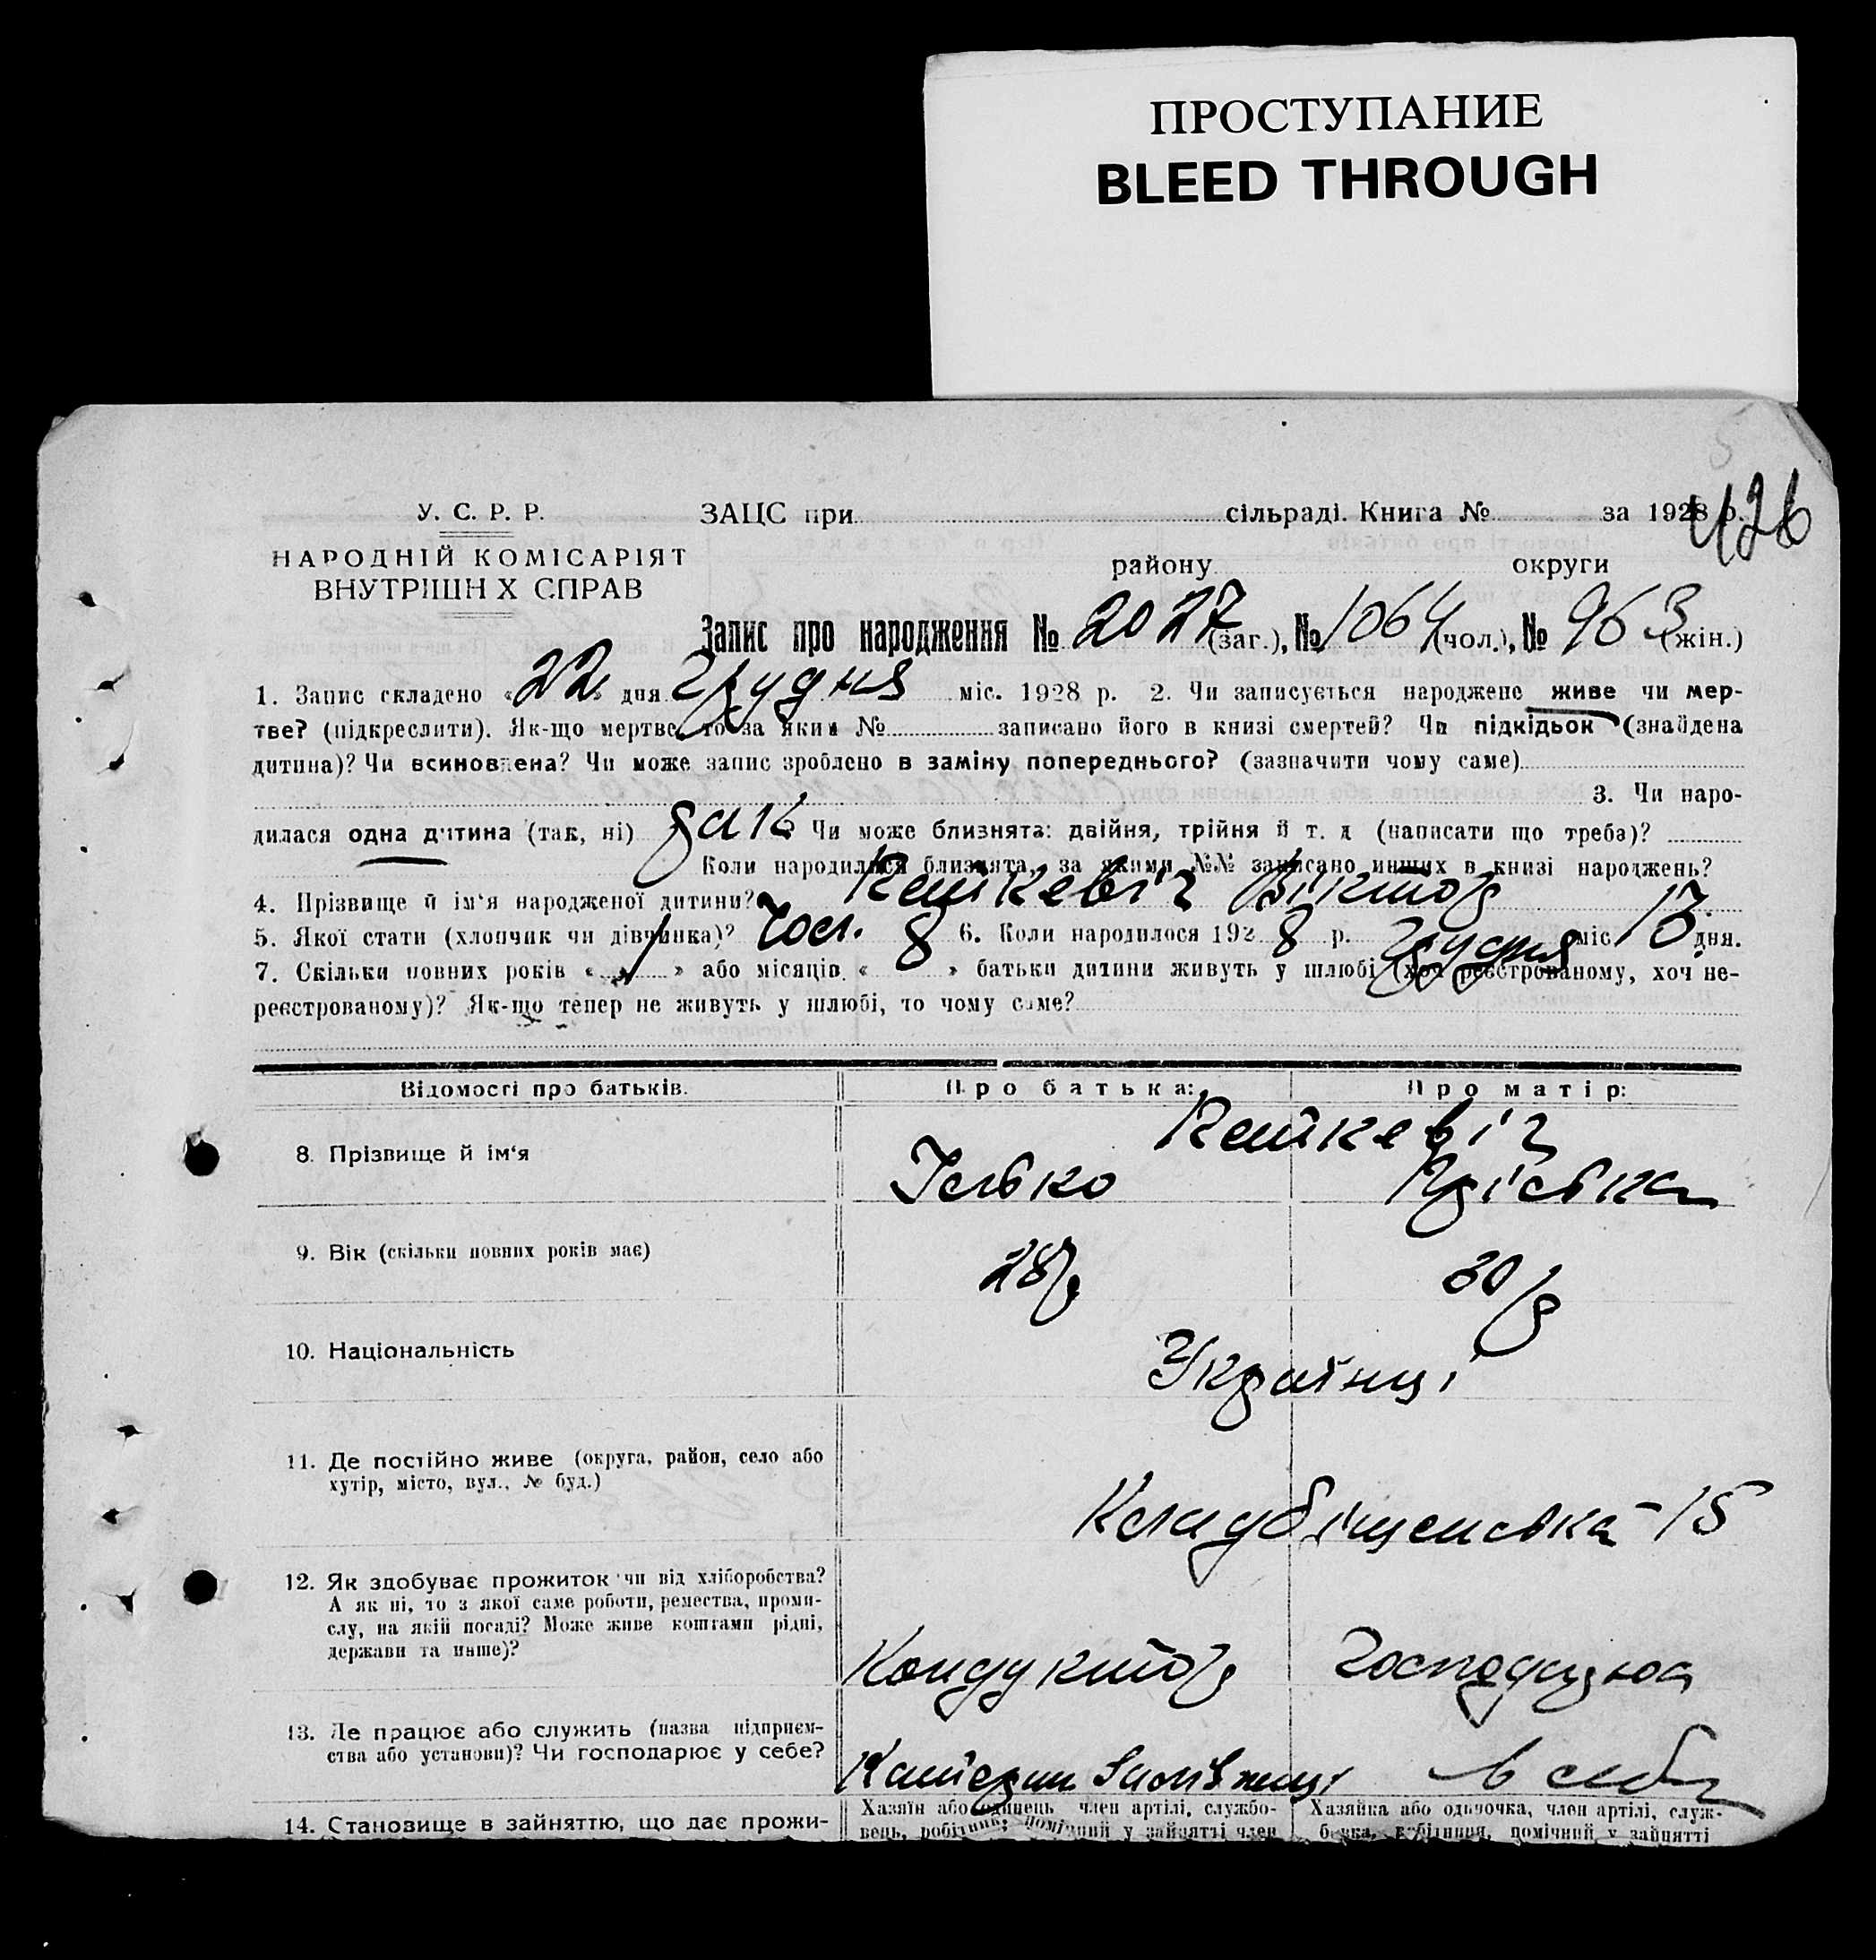 ПРОСТУПАНИЕ
BLEED THROUGH
426
У. С. Р. Р.
НАРОДНІЙ КОМІСАРІЯТ
ВНУТРІШН Х СПРАВ
ЗАЦС при сільраді. Книга № за 1928 р.
району округи
Запис про народження № 2027 (заг.), № 1064 (чол.), № 963 (жін.)
1. Запис складено «22» дня Грудня міс. 1928 р. 2. Чи записується народжене живе чи мер-
тве? (підкреслити). Як-що мертве, то за яким № записано його в книзі смертей? Чи підкідьок (знайдена
дитина)? Чи всиновлена? Чи може запис зроблено в заміну попереднього? (зазначити чому саме)
3. Чи наро-
дилася одна дитина (так, ні) Чи може близнята: двійня, трійня й т. д (написати що треба)?
Коли народилися близнята, за якими №№ записано инших в книзі народжень?
4. Прізвище й ім'я народженої дитини? Віктор
5. Якої стати (хлопчик чи дівчинка)? 6. Коли народилося 1928 р. Грудня міс 13 дня.
7. Скільки повних років « » або місяців « 8 » батьки дитини живуть у шлюбі (хоч реєстрованому, хоч не-
реєстрованому)? Як-що тепер не живуть у шлюбі, то чому саме?
Відомості про батьків. Про батька: Про матір:
8. Прізвище й ім'я
9. Вік (скільки повних років має) 28 р 30/р
10. Національність Українці
11. Де постійно живе (округа, район, село або
хутір, місто, вул., № буд.)
Кладбіщенська - 15
12. Як здобуває прожиток чи від хліборобства?
А як ні, то з якої саме роботи, ремества, проми-
слу, на якій посаді? Може живе коштами рідні,
держави та инше)?
Кондуктор
13. Де працює або служить (назва підприєм-
ства або установи)? Чи господарює у себе?
14. Становище в зайняттю, що дає прожи-
Хазяїн або одинець член артілі, службо-
вець, робітник, помічний у зайнятті член
Хазяйка або одиночка, член артілі, служ-
бовка, робітниця, помічний у зайнятті